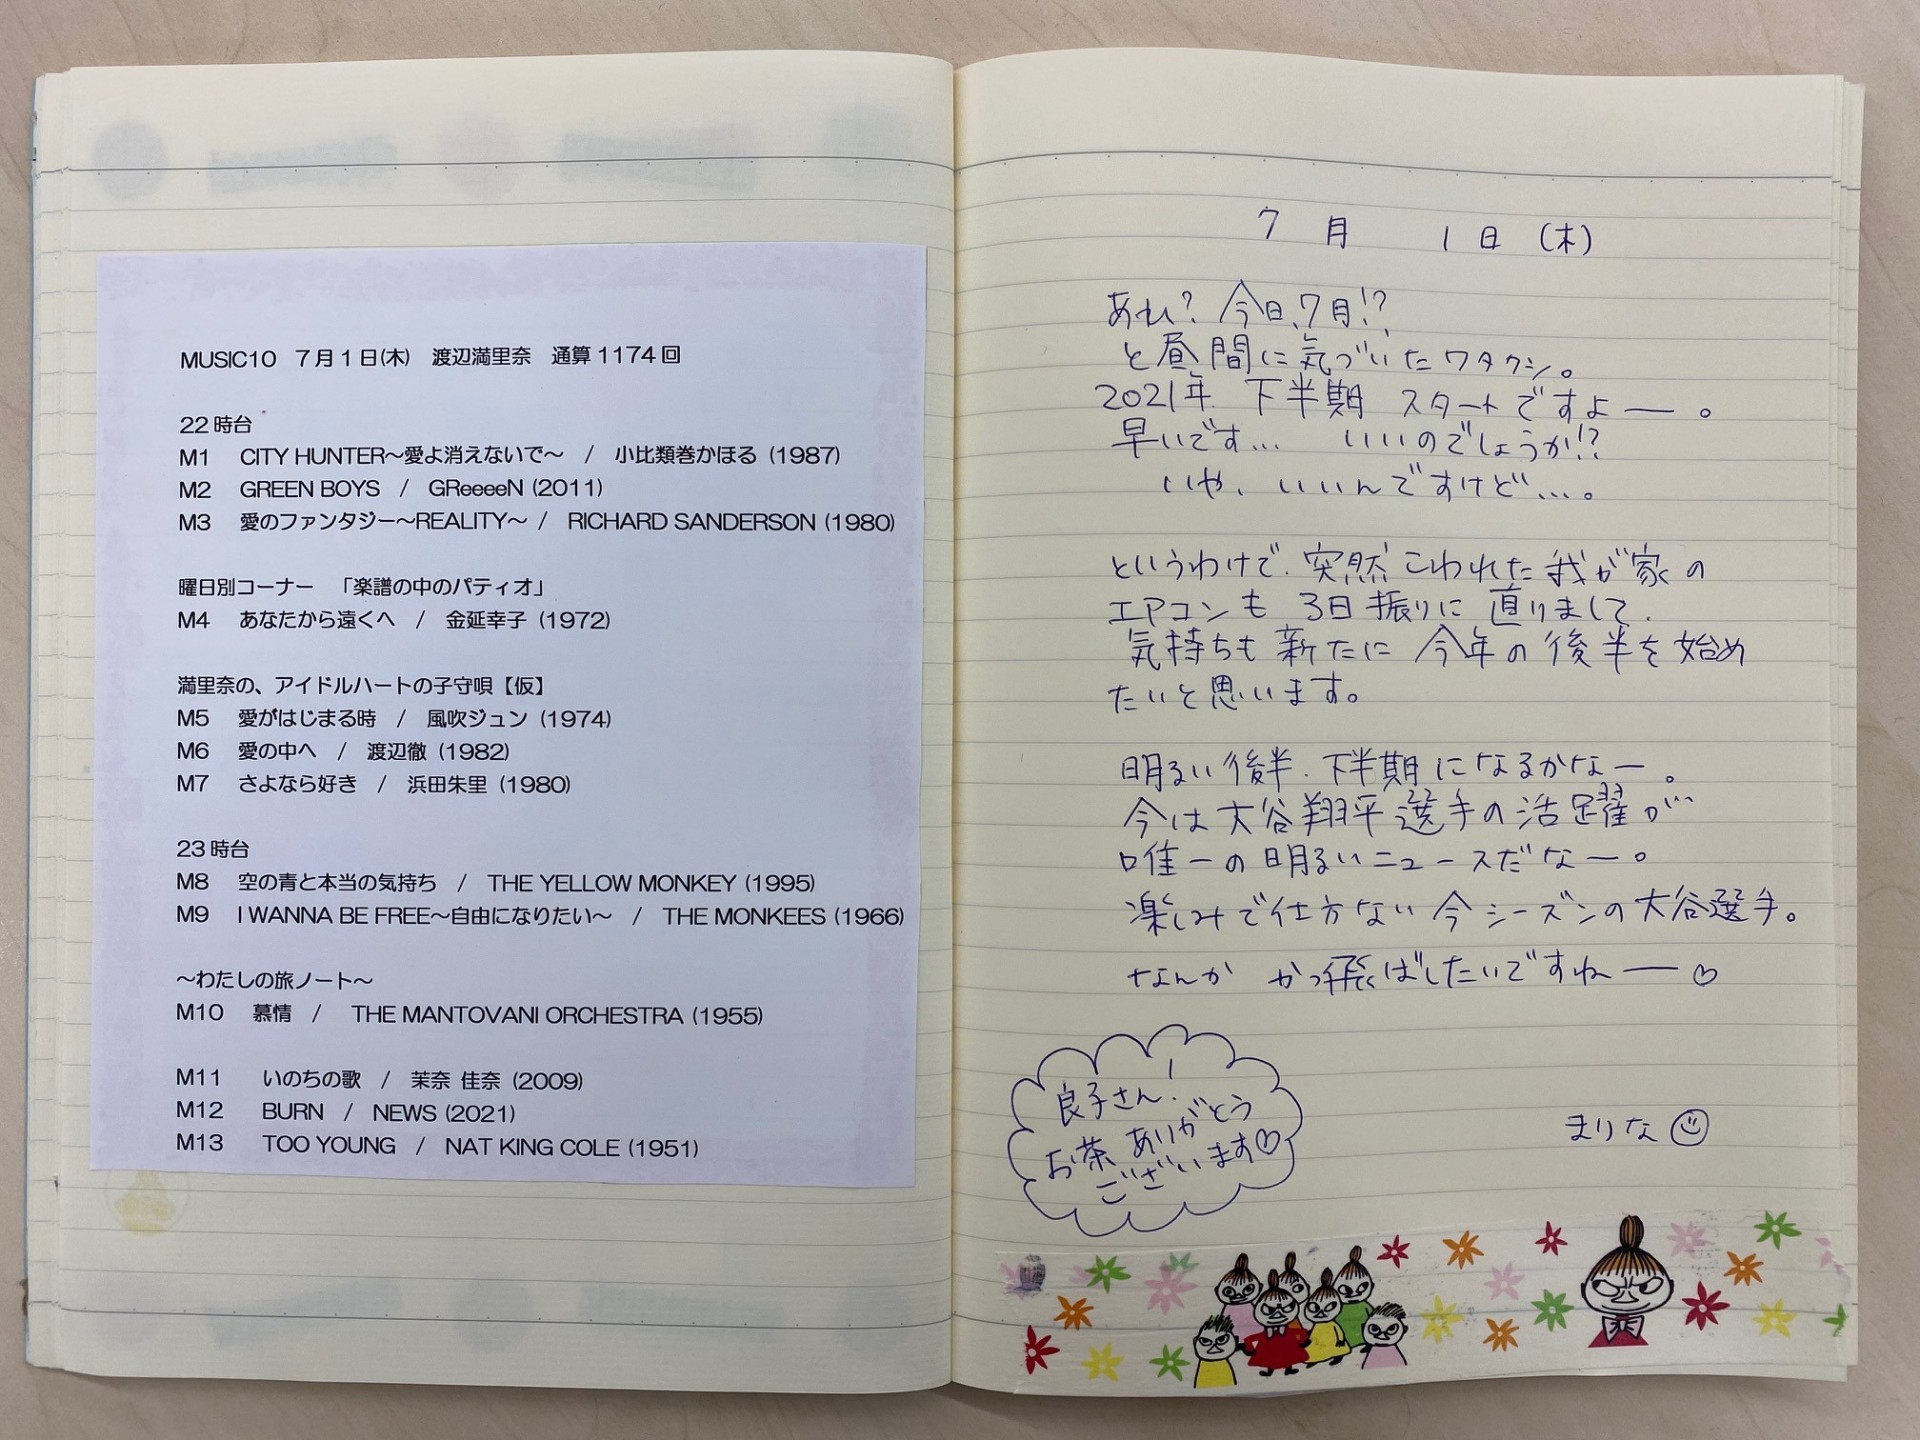 MUSIC10　7月1日(木)　渡辺満里奈　通算1174回
22時台
M1　CITY HUNTER～愛よ消えないで～　/　小比類巻かほる (1987)
M2　GREEN BOYS　/　GReeeeN (2011)
M3　愛のファンタジー～REALITY～ /　RICHARD SANDERSON (1980)
曜日別コーナー　「楽譜の中のパティオ」
M4　あなたから遠くへ　/　金延幸子 (1972)
満里奈の、アイドルハートの子守唄【仮】
M5　愛がはじまる時　/　風吹ジュン (1974)
M6　愛の中へ　/　渡辺徹 (1982)
M7　さよなら好き　/　浜田朱里 (1980)
23時台
M8　空の青と本当の気持ち　/　THE YELLOW MONKEY (1995)
M9　I WANNA BE FREE～自由になりたい～　/　THE MONKEES (1966)
～わたしの旅ノート～
M10　慕情　/　THE MANTOVANI ORCHESTRA (1955)
M11　いのちの歌　/　茉奈 佳奈 (2009)
M12　BURN　/　NEWS (2021)
M13　TOO YOUNG　/　NAT KING COLE (1951)
7月　1日 (木)
あれ? 今日、7月!?
と昼間に気づいたワタクシ。
2021年 下半期 スタートですよー。
早いです… いいのでしょうか!?
いや、いいんですけど…。
というわけで、突然こわれた我が家の
エアコンも 3日振りに 直りまして、
気持ちも新たに 今年の後半を始め
たいと思います。
明るい後半、下半期になるかなー。
今は大谷翔平選手の活躍が
唯一の明るいニュースだなー。
楽しみで仕方ない今シーズンの大谷選手。
なんか かっ飛ばしたいですねー♡
良子さん!
お茶 ありがとう
ございます♡
まりな☺